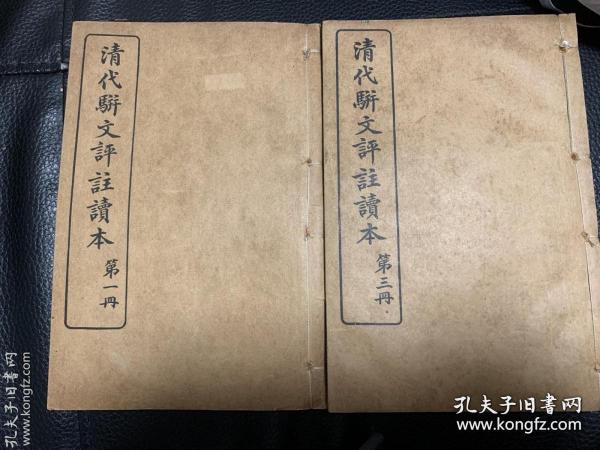 清代駢文評註讀本
第一冊
清代駢文評註讀本
第三冊
孔夫子旧書网
www.kongfz.com
孔夫子旧書网
www.kongfz.com